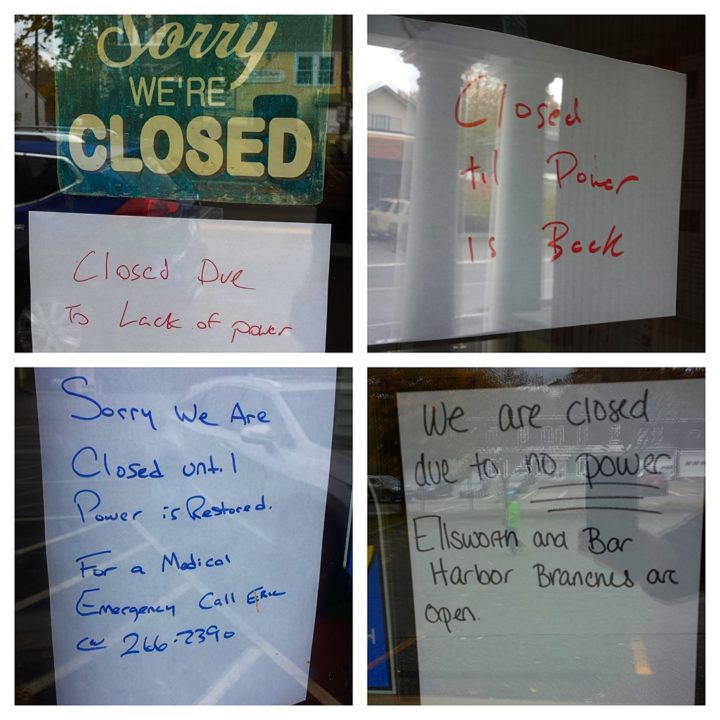 Sorry
WE'RE
CLOSED
Closed Due
To Lack of power
Closed
til Power
is Back
Sorry We Are
Closed until
Power is Restored.
For a Medical
Emergency Call Eric
@ 266-2390
We are closed
due to no power
Ellsworth and Bar
Harbor Branches are
open.